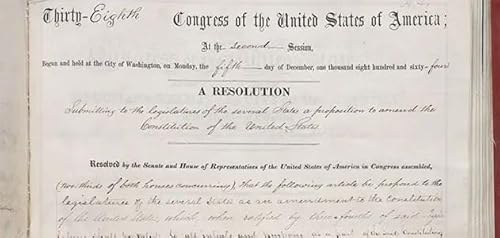 Thirty-Eighth Congress of the United States of America;
At the second Session,
Begun and held at the City of Washington, on Monday, the fifth day of December, one thousand eight hundred and sixty-four
A RESOLUTION
Submitting to the legislatures of the several States a proposition to amend the
Constitution of the United States.
Resolved by the Senate and House of Representatives of the United States of America in Congress assembled,
(two thirds of both houses concurring), that the following article be proposed to the
legislatures of the several States as an amendment to the constitution
of the United States, which, when ratified by three fourths of said
to all intents and purposes as a part of the said Constitution,